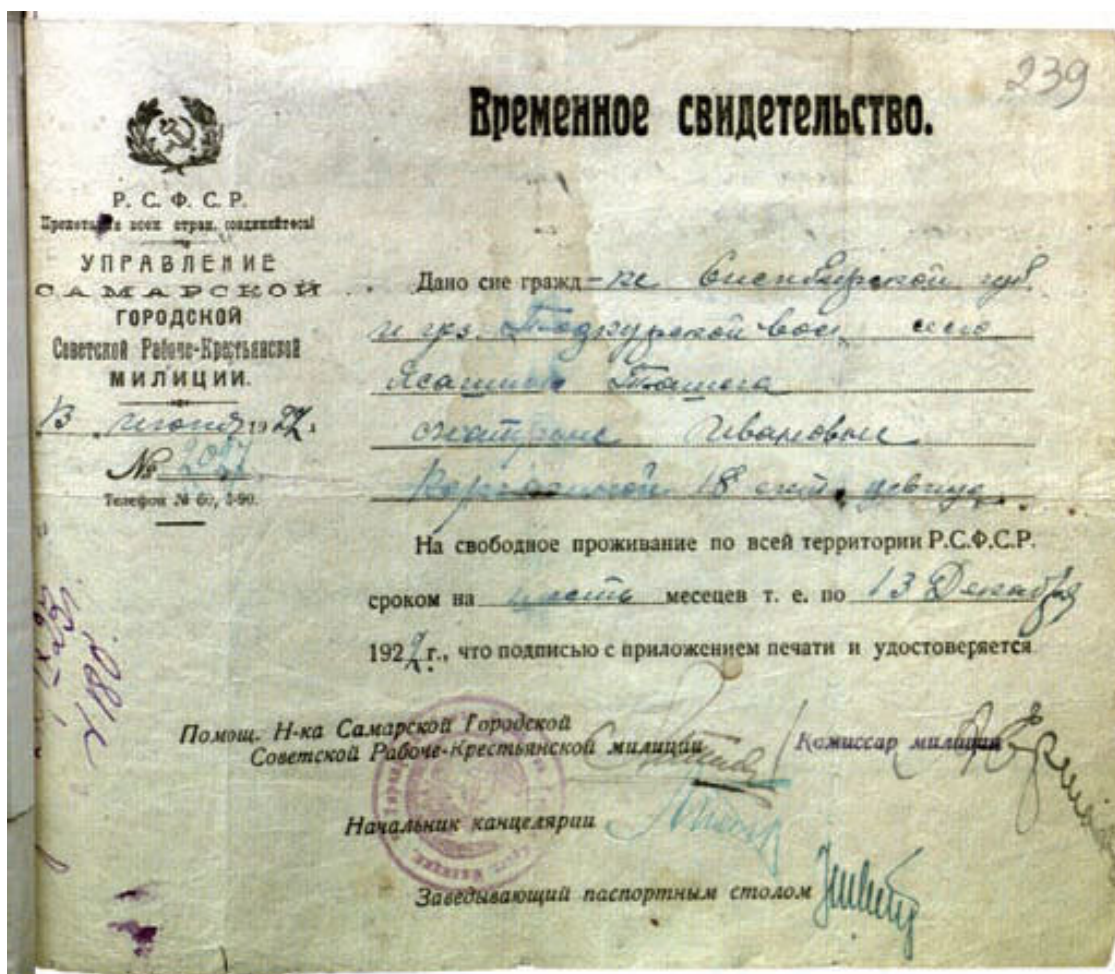 239
Временное свидетельство.
Р. С. Ф. С. Р.
Пролетарии всех стран, соединяйтесь!
УПРАВЛЕНИЕ
САМАРСКОЙ
ГОРОДСКОЙ
Советской Рабоче-Крестьянской
МИЛИЦИИ.
13 июня 1922 г.
№
Телефон № 60, 2-90.
Дано сие гражд-ке Симбирской губ.
и уез. Тодкурской вол. село
Ясашное Ташога
Ивановне
18 лет, девица.
На свободное проживание по всей территории Р.С.Ф.С.Р.
сроком на шесть месецев т. е. по 13 Декабря
1922 г., что подписью с приложением печати и удостоверяется
Помощ. Н-ка Самарской Городской
Советской Рабоче-Крестьянской милиции
Комиссар милиции
Начальник канцелярии
Заведывающий паспортным столом